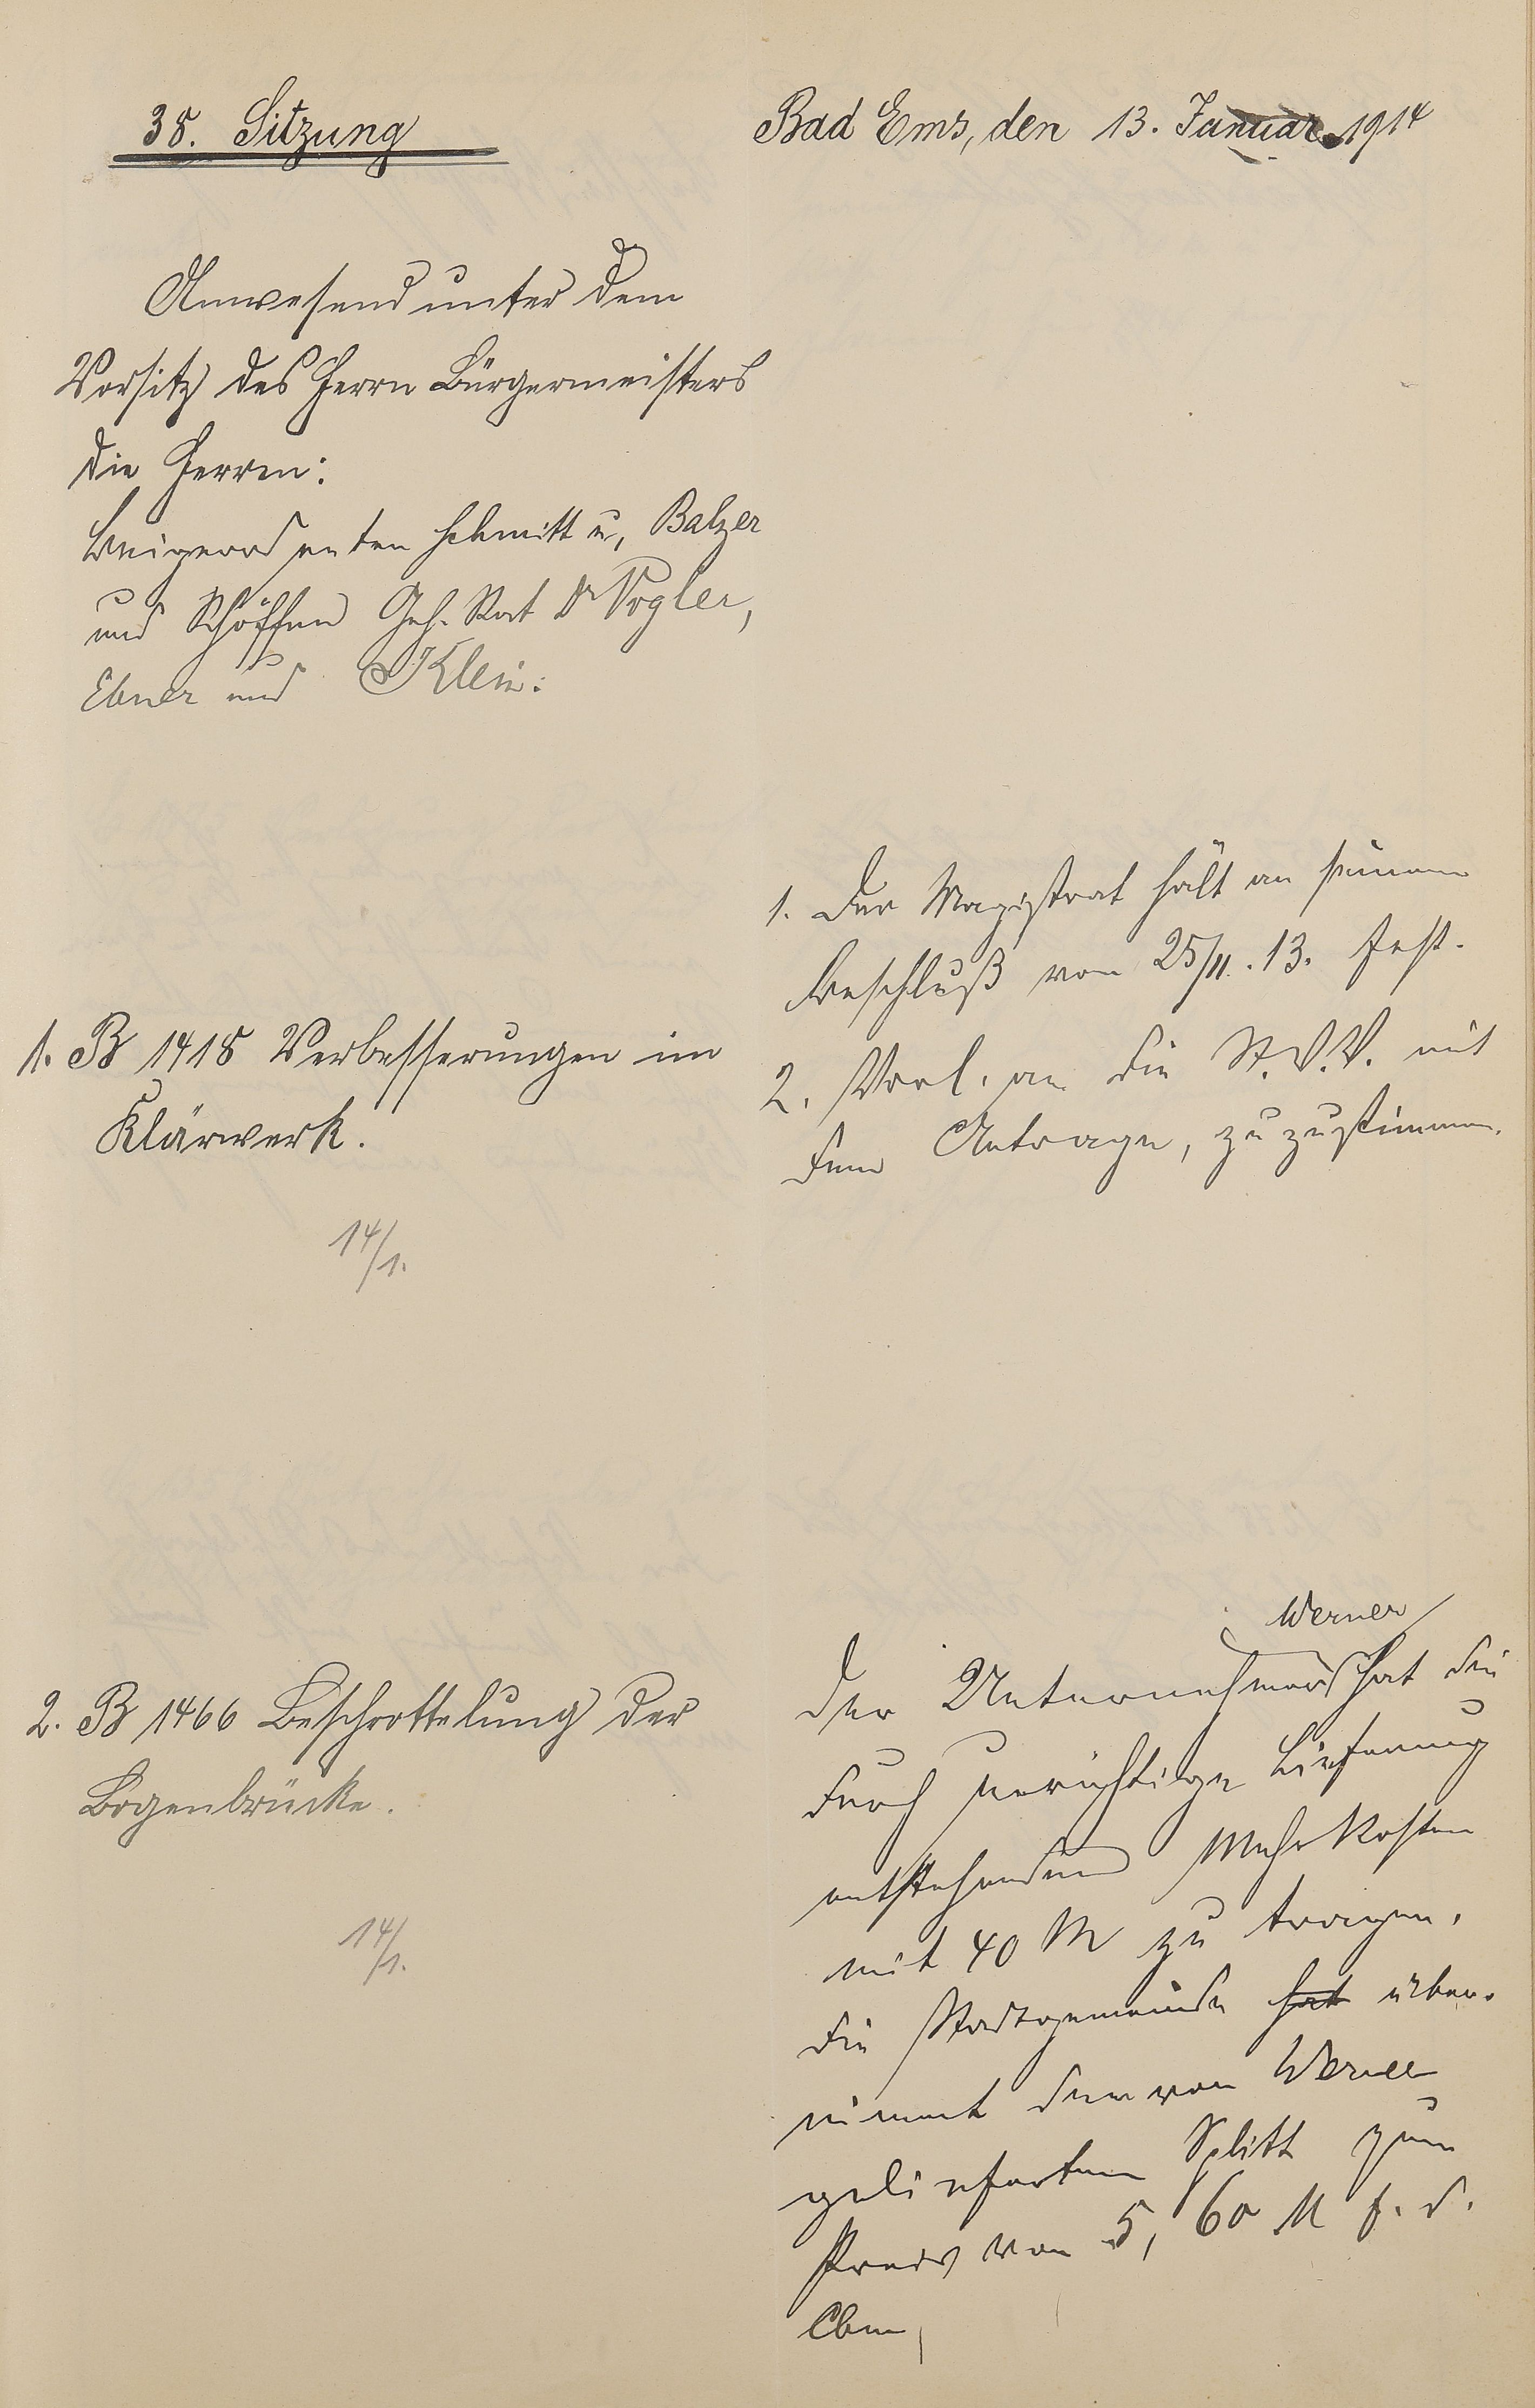 38. Sitzung
Bad Ems, den 13. Januar 1914
Anwesend unter dem
Vorsitz des Herrn Bürgermeisters
die Herren:
Beigeordneten Schmitt u. Balzer
und Schöffen Geh. Rat Dr Vogler,
Ebner und Klein.
1. B 1418 Verbesserungen im
Klärwerk.
14/1.
1. Der Magistrat hält an seinem
Beschluß vom 25/11.13. fest.
2. Vorl. an die St.V.V. mit
dem Antrage, zuzustimmen.
2. B 1466 Beschrottelung der
Bogenbrücke.
14/1.
Werner
Der Unternehmer hat die
durch Lieferung
entstehenden Mehrkosten
mit 40 M zu tragen.
Die Stadtgemeinde hat über-
nimmt den von Werner
gelieferten Splitt zum
Preis von 5,60 M f. d.
Cbm